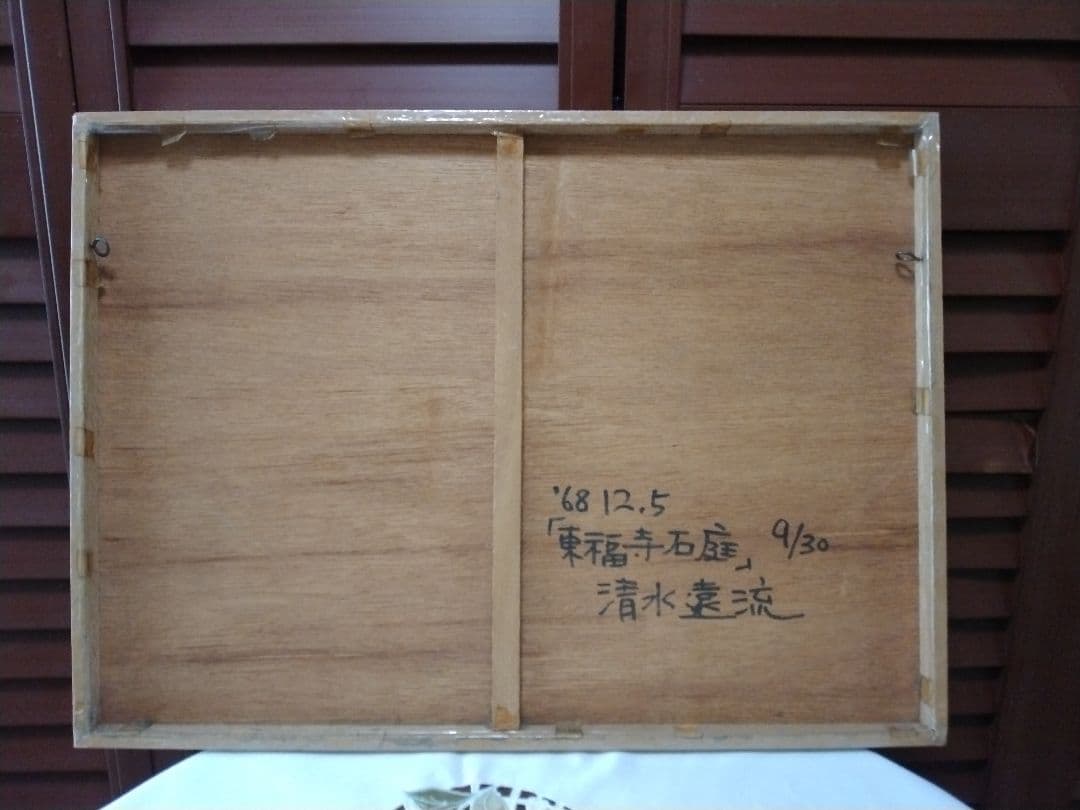 '68 12.5
「東福寺石庭」 9/30
清水遠流